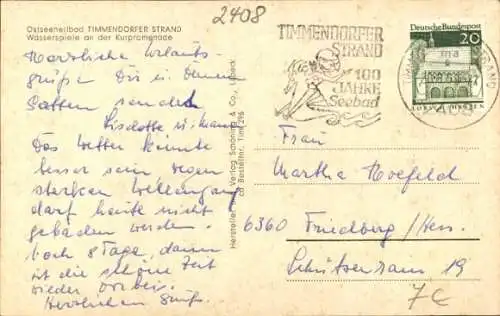 2408
Ostseeheilbad TIMMENDORFER STRAND
Wasserspiele an der Kurpromenade
Herzliche Urlaubs-
grüße Dir u. Deinem
Gatten sendet
Liselotte u. Mann
Das Wetter könnte
besser sein wegen
starken Wellengang
darf heute nicht
gebadet werden.
Noch 8 Tage, dann
ist die schöne Zeit
wieder vorbei.
Herzlichen Gruß
Hersteller: Verlag Schöning & Co., Lübeck
Bestellnr. Tim 296
TIMMENDORFER
STRAND
100
JAHRE
Seebad
Deutsche Bundespost
20
LORSCH HESSEN
TIMMENDORFER STRAND
2408
Frau
Martha Hoefeld
6360 Friedberg/Hess.
Schützenrain 19
7€